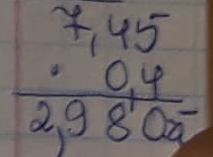 7,45
· 0,4
2,980